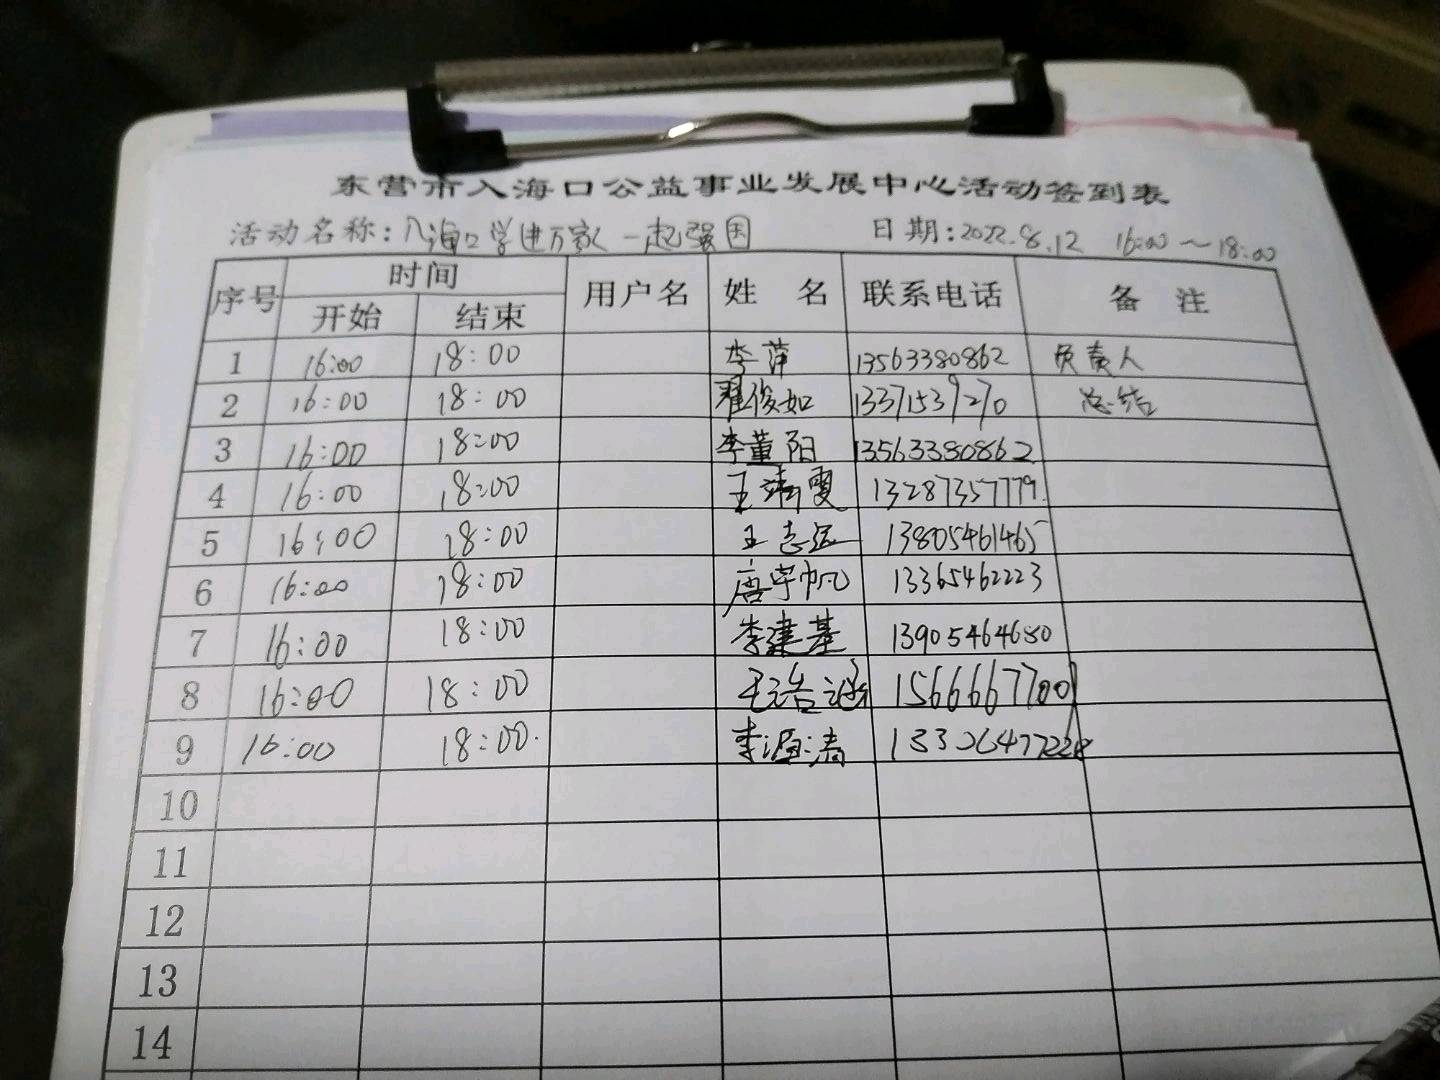 东营市入海口公益事业发展中心活动签到表
活动名称：入海口学进万家一起强国 日期：2022.8.12 16:00～18:00
序号 时间 用户名 姓 名 联系电话 备 注
开始 结束
1 16:00 18:00 李萍 13563380862 负责人
2 16:00 18:00 翟俊如 13371539270 总结
3 16:00 18:00 李董阳 13563380862
4 16:00 18:00 王靖雯 13287357779
5 16:00 18:00 王志远 13805461465
6 16:00 18:00 唐宇帆 13365462223
7 16:00 18:00 李建基 13905464680
8 16:00 18:00 15666677001
9 16:00 18:00
10
11
12
13
14